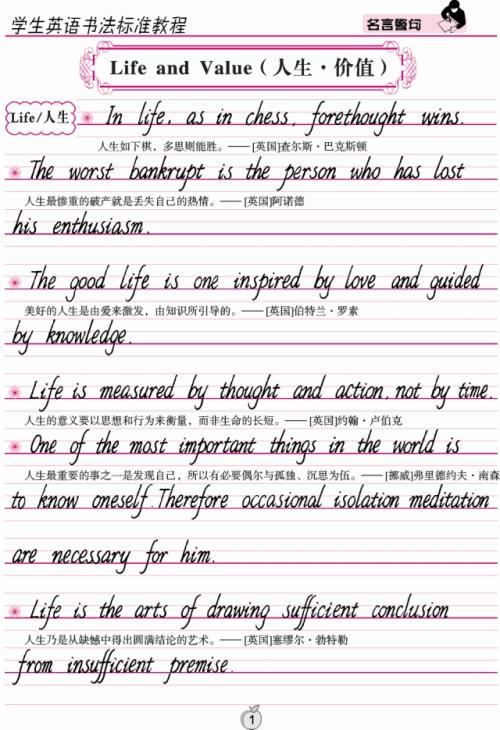 学生英语书法标准教程
名言警句
Life and Value（人生·价值）
Life/人生
In life, as in chess, forethought wins.
人生如下棋，多思则能胜。——[英国]查尔斯·巴克斯顿
The worst bankrupt is the person who has lost
人生最惨重的破产就是丢失自己的热情。——[英国]阿诺德
his enthusiasm.
The good life is one inspired by love and guided
美好的人生是由爱来激发，由知识所引导的。——[英国]伯特兰·罗素
by knowledge.
Life is measured by thought and action, not by time.
人生的意义要以思想和行为来衡量，而非生命的长短。——[英国]约翰·卢伯克
One of the most important things in the world is
人生最重要的事之一是发现自己，所以有必要偶尔与孤独、沉思为伍。——[挪威]弗里德约夫·南森
to know oneself.Therefore occasional isolation meditation
are necessary for him.
Life is the arts of drawing sufficient conclusion
人生乃是从缺憾中得出圆满结论的艺术。——[英国]塞缪尔·勃特勒
from insufficient premise.
1